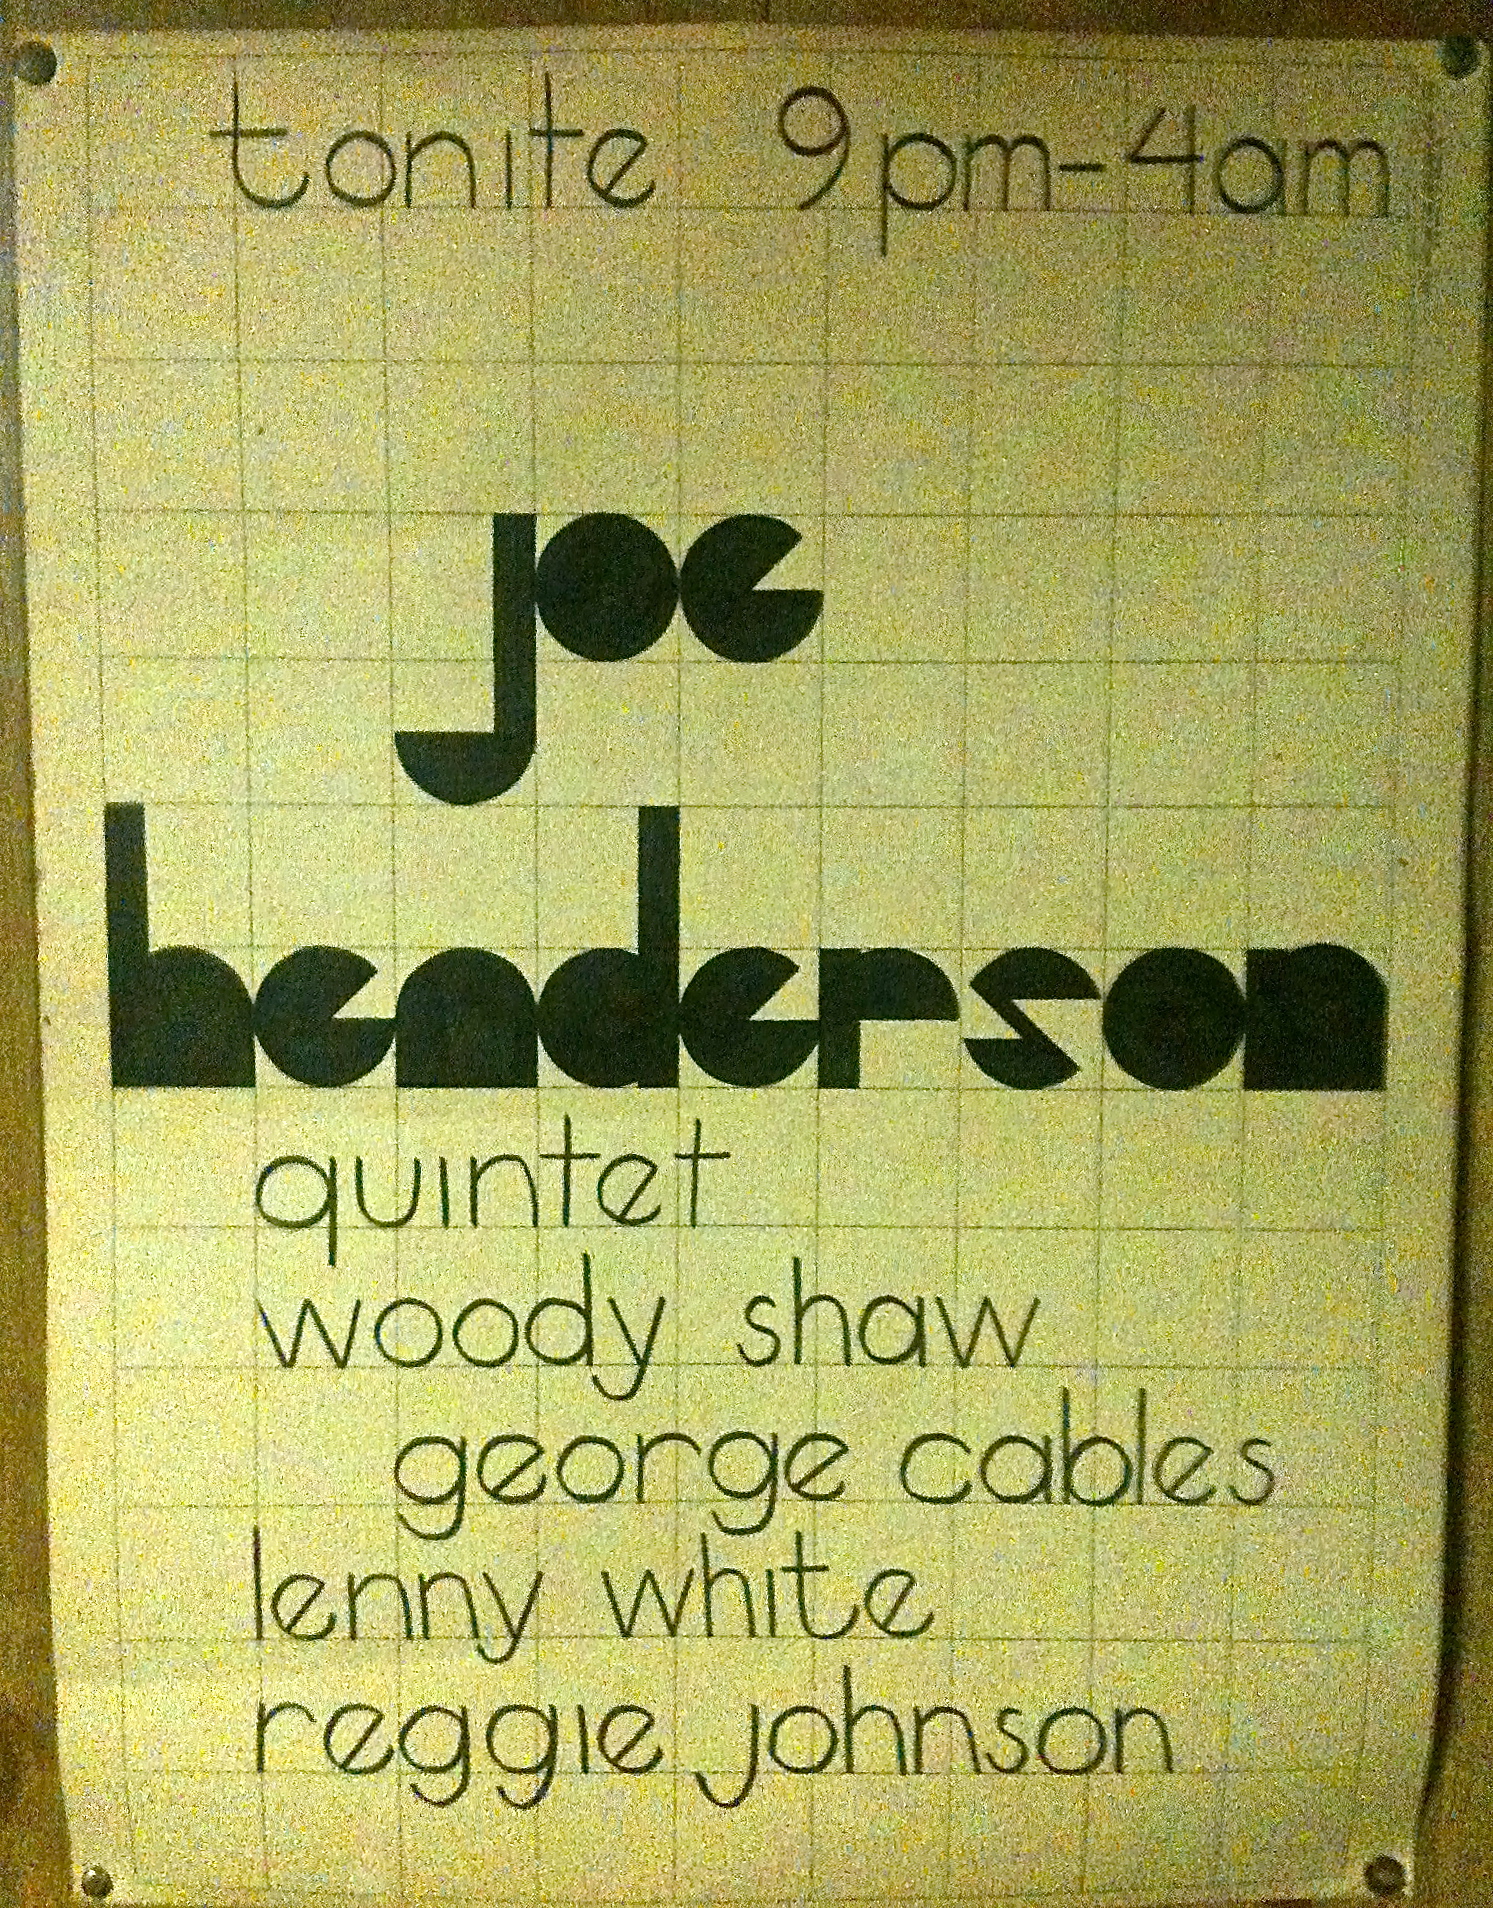 tonite 9pm-4am
joe
henderson
quintet
woody shaw
george cables
lenny white
reggie johnson